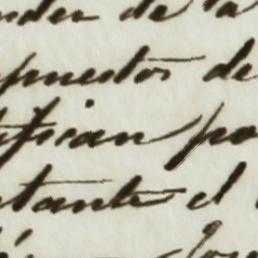 nder de la
puestos de
tifican po
tante el